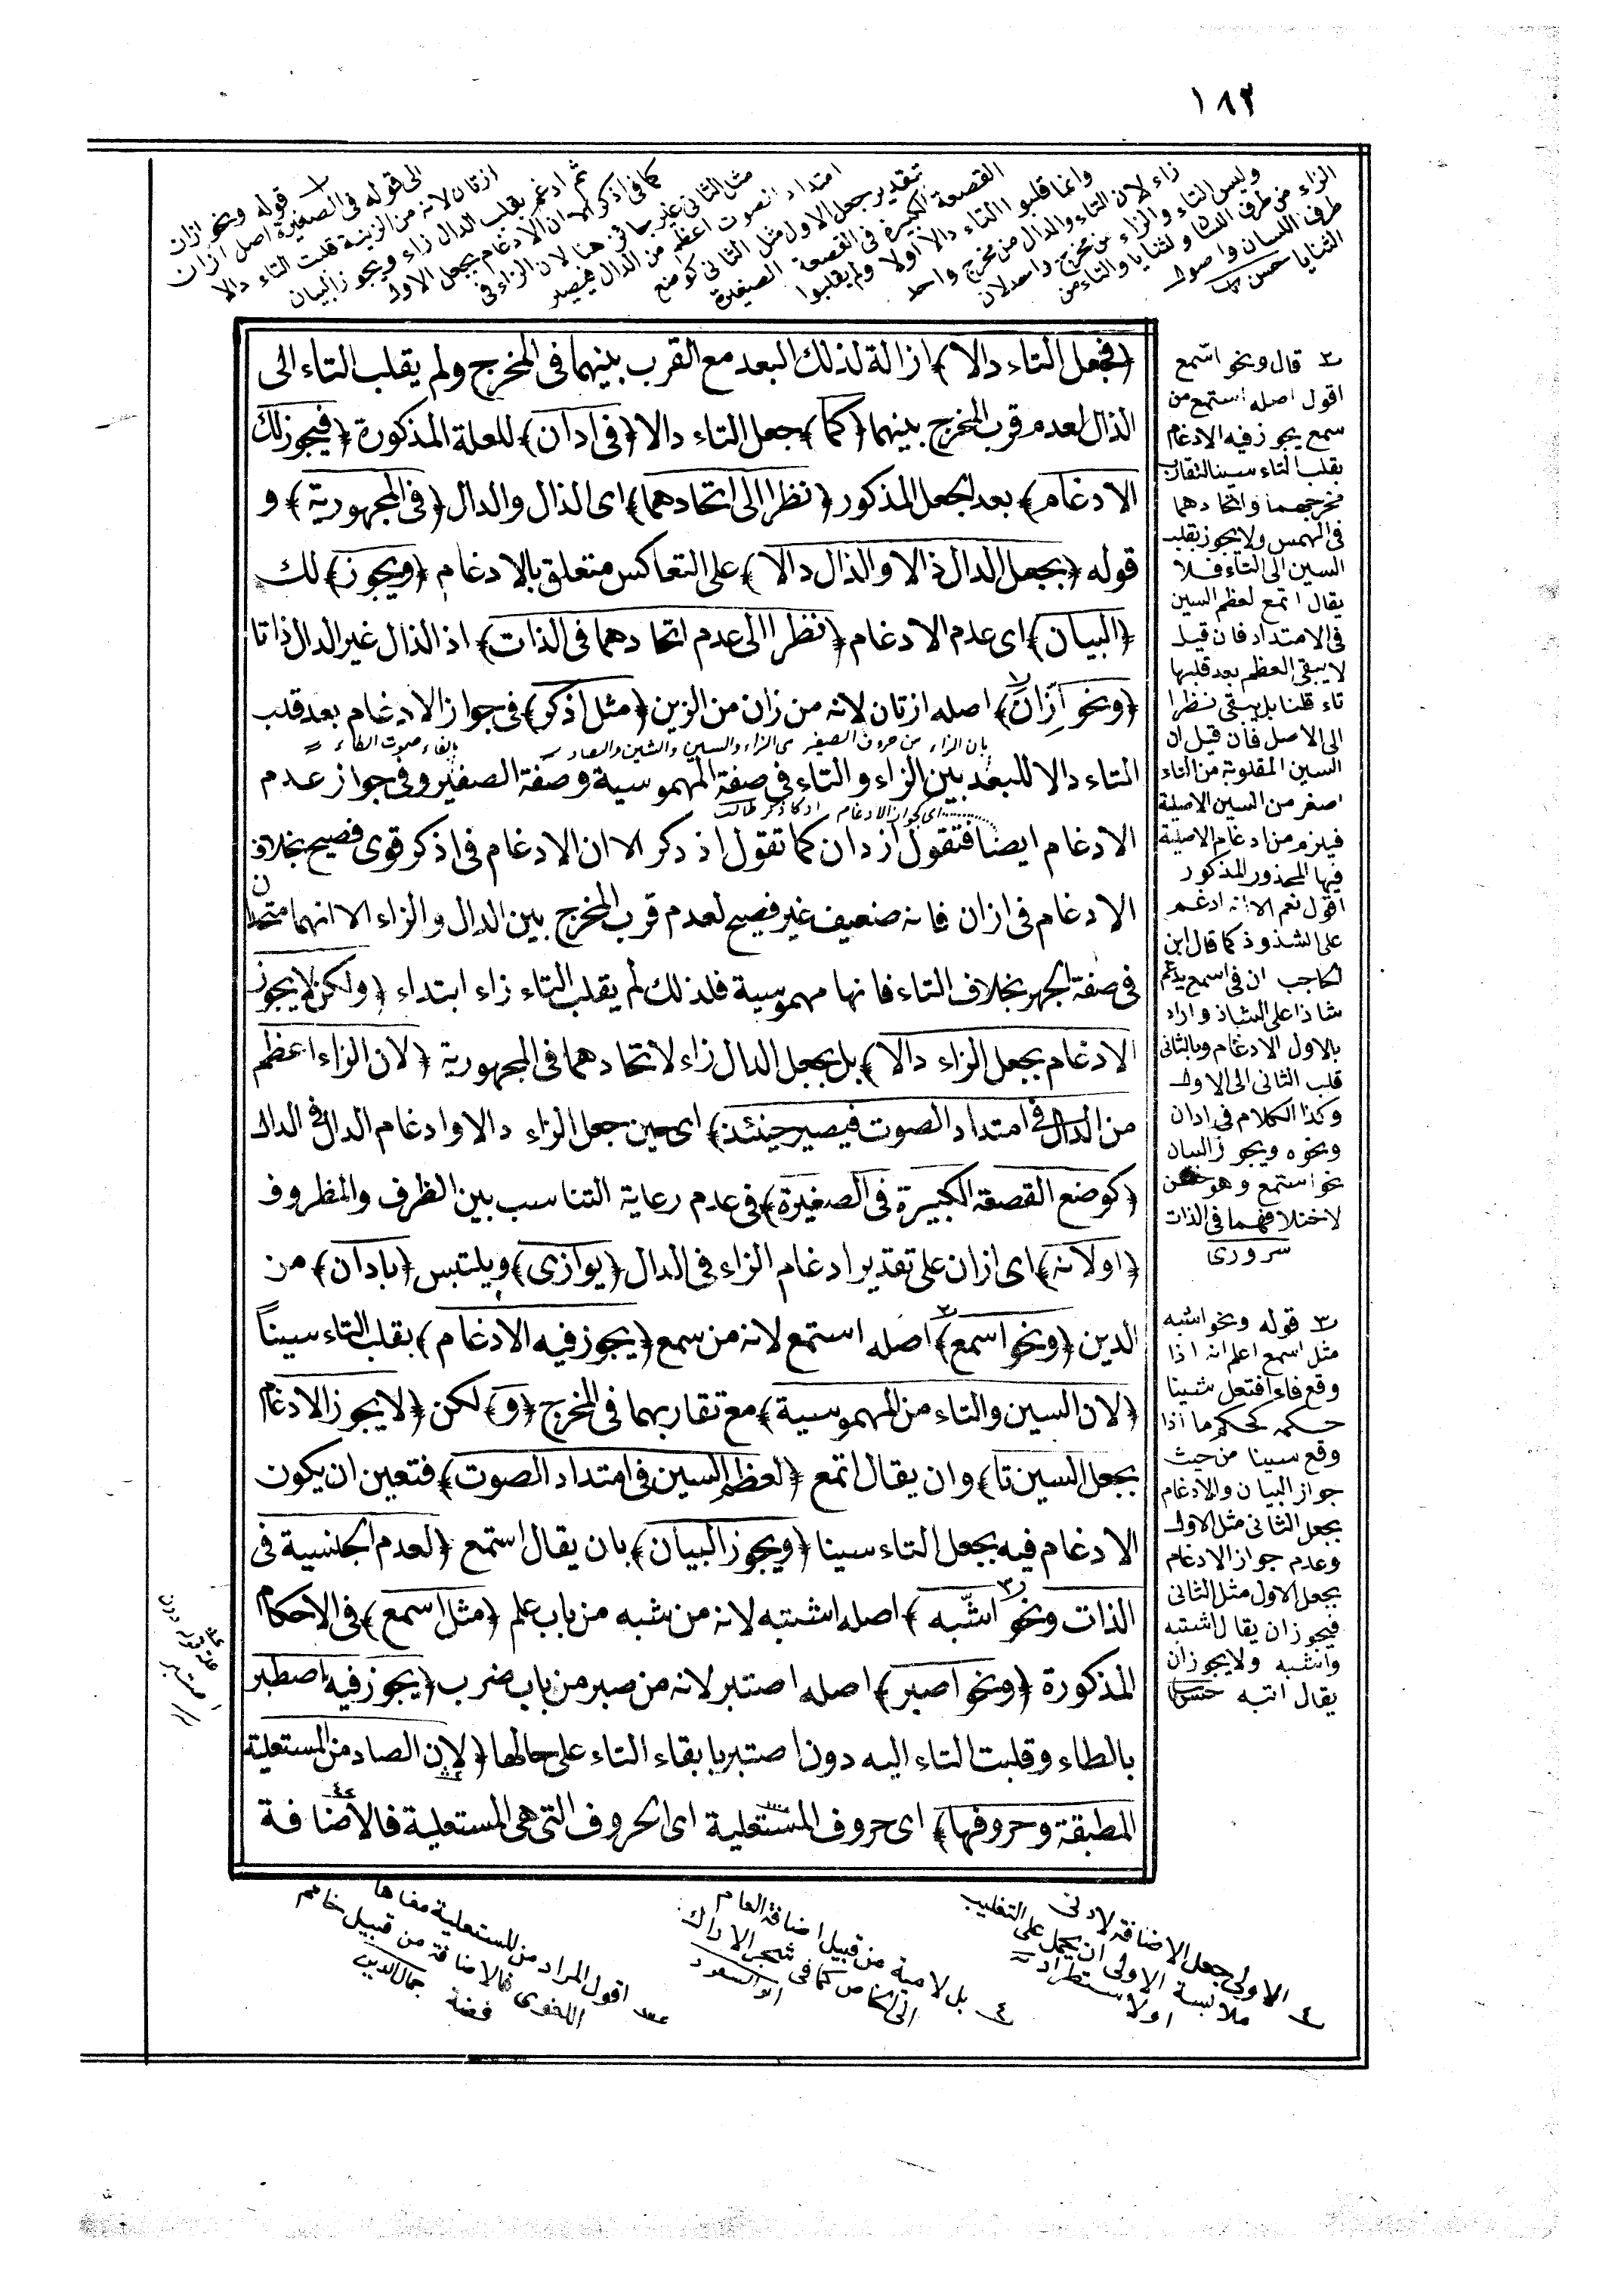 ١٨٢
١ قوله ونحو ازان
الى قوله فى الصغيرة اصل ازان
ازتان لانه من الزينة قلبت التاء دالا
ثم ادغم بقلب الدال زاء ويجوز البيان
كما فى اذكر الا ان الادغام بجعل الاول
مثل الثانى غير جائز هنا لان الزاء فى
امتداد الصوت اعظم من الدال فيصير
تقدير جعل الاول مثل الثانى كوضع
القصعة الكبيرة فى القصعة الصغيرة
وانما قلبوا التاء دالا اولا ولم يقلبوا
زاء لان التاء والدال من مخرج واحد
وليس التاء والزاء من مخرج واحد لان
الزاء من طرف اللسان والثنايا والتاء من
طرف اللسان واصول
الثنايا حسن
﴿فجعل التاء دالا﴾ ازالة لذلك البعد مع القرب بينهما فى المخرج ولم يقلب التاء الى
الذال لعدم قرب المخرج بينهما ﴿كما﴾ جعل التاء دالا ﴿فى ادان﴾ للعلة المذكورة ﴿فيجوز لك
الادغام﴾ بعد الجعل المذكور ﴿نظرا الى اتحادهما﴾ اى الذال والدال ﴿فى المجهورية﴾ و
قوله ﴿بجعل الدال ذالا والذال دالا﴾ على التعاكس متعلق بالادغام ﴿ويجوز﴾ لك
﴿البيان﴾ اى عدم الادغام ﴿نظرا الى عدم اتحادهما فى الذات﴾ اذ الذال غير الدال ذاتا
﴿ونحو ازّان﴾ اصله ازتان لانه من زان من الزين ﴿مثل اذكر﴾ فى جواز الادغام بعد قلب
بان الزاء من حروف الصفير هى الزاء والسين والشين والصاد
التاء دالا للبعد بين الزاء والتاء فى صفة المهموسية وصفة الصفير وفى جواز عدم
اى لجواز الادغام
الادغام ايضا فتقول ازدان كما تقول اذدكر الا ان الادغام فى اذكر قوى فصيح بخلاف
الادغام فى ازان فانه ضعيف غير فصيح لعدم قرب المخرج بين الدال والزاء الا انهما متحدان
فى صفة الجهر بخلاف التاء فانها مهموسية فلذلك لم يقلب التاء زاء ابتداء ﴿ولكن لا يجوز
الادغام بجعل الزاء دالا﴾ بل بجعل الدال زاء لاتحادهما فى المجهورية ﴿لان الزاء اعظم
من الدال فى امتداد الصوت فيصير حينئذ﴾ اى حين جعل الزاء دالا وادغام الدال فى الدال
﴿كوضع القصعة الكبيرة فى الصغيرة﴾ فى عدم رعاية التناسب بين الظرف والمظروف
﴿اولانه﴾ اى ازان على تقدير ادغام الزاء فى الدال ﴿يوازى﴾ ويلتبس ﴿بادان﴾ من
الدين ﴿ونحو اسمع﴾ اصله استمع لانه من سمع ﴿يجوز فيه الادغام﴾ بقلب التاء سيناً
﴿لان السين والتاء من المهموسية﴾ مع تقاربهما فى المخرج ﴿و﴾ لكن ﴿لا يجوز الادغام
بجعل السين تا﴾ وان يقال اتمع ﴿لعظم السين فى امتداد الصوت﴾ فتعين ان يكون
الادغام فيه بجعل التاء سينا ﴿ويجوز البيان﴾ بان يقال استمع ﴿لعدم الجنسية فى
الذات ونحو اشّبه﴾ اصله اشتبه لانه من شبه من باب علم ﴿مثل اسمع﴾ فى الاحكام
المذكورة ﴿ونحو اصبر﴾ اصله اصتبر لانه من صبر من باب ضرب ﴿يجوز فيه اصطبر
بالطاء وقلبت التاء اليه دون اصتبر بابقاء التاء على حالها ﴿لان الصاد من المستعلية
المطبقة وحروفها﴾ اى حروف المستعلية اى الحروف التى هى المستعلية فالاضافة
٢ قال ونحو اسّمع
اقول اصله استمع من
سمع يجوز فيه الادغام
بقلب التاء سينا لتقارب
مخرجهما واتحادهما
فى الهمس ولا يجوز بقلب
السين الى التاء فلا
يقال اتمع لعظم السين
فى الامتداد فان قيل
لا يبقى العظم بعد قلبها
تاء قلنا بل يبقى نظرا
الى الاصل فان قيل ان
السين المقلوبة من التاء
اصغر من السين الاصلية
فيلزم من ادغام الاصلية
فيها المحذور المذكور
اقول نعم الا انه ادغم
على الشذوذ كما قال ابن
الحاجب ان فى اسمع يدغم
شاذا على الشاذ واراد
بالاول الادغام وبالثانى
قلب الثانى الى الاول
وكذا الكلام فى ادان
ونحوه ويجوز البيان
نحو استمع وهو حسن
لاختلافهما فى الذات
سرورى
٣ قوله ونحو اشبه
مثل اسمع اعلم انه اذا
وقع فاء افتعل شينا
حكمه كحكم ما اذا
وقع سينا من حيث
جواز البيان والادغام
بجعل الثانى مثل الاول
وعدم جواز الادغام
بجعل الاول مثل الثانى
فيجوز ان يقال اشتبه
واشبه ولا يجوز ان
يقال اتبه
٤ الاولى جعل الاضافة لادنى
ملابسة الاولى ان يحمل على التغليب
اولا ستطراد
٤ بل لامية من قبيل اضافة العام
الى الخاص كما فى شجر الاراك
ابو السعود
اقول المراد من المستعلية معناها
اللغوى فالاضافة من قبيل خاتم
فضة جمال الدين